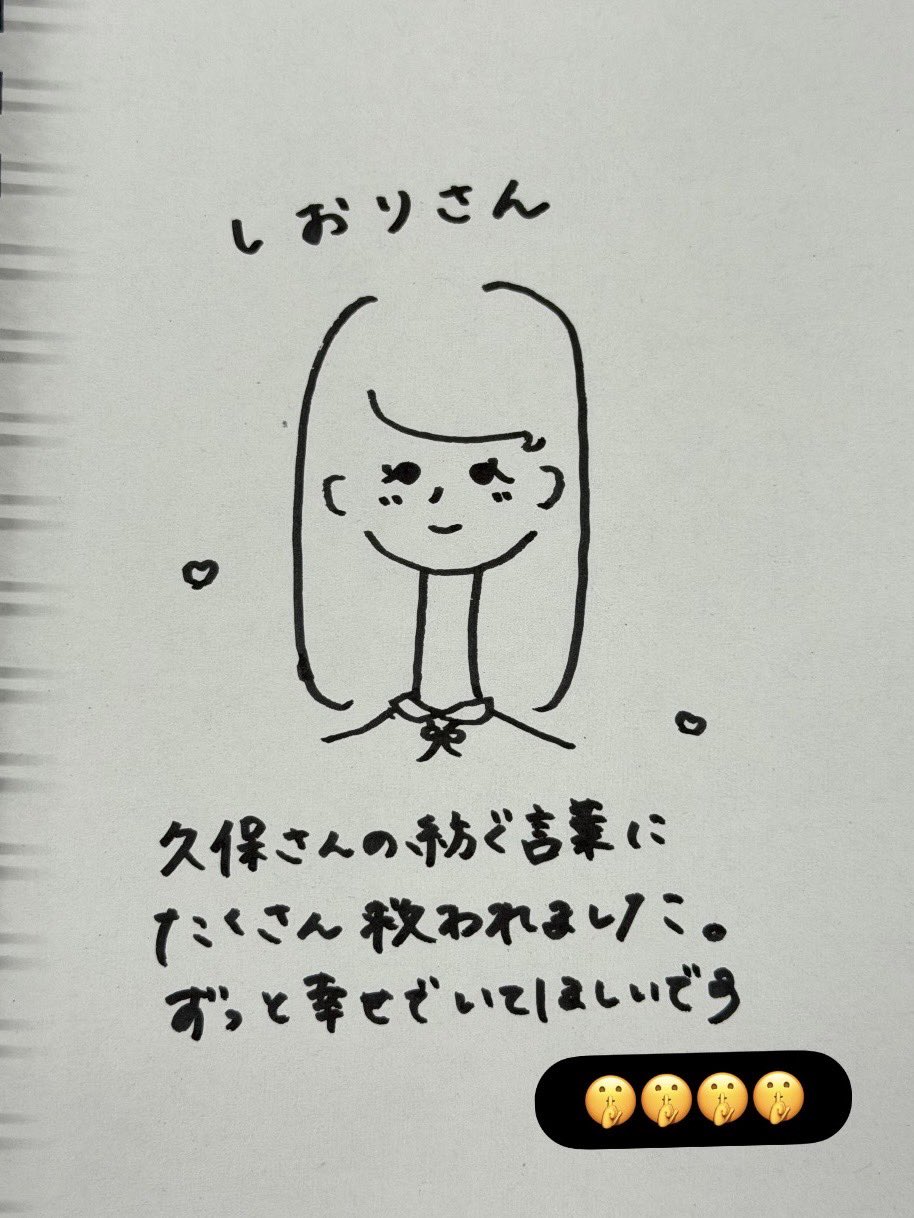 しおりさん
久保さんの紡ぐ言葉に
たくさん救われました。
ずっと幸せでいてほしいです